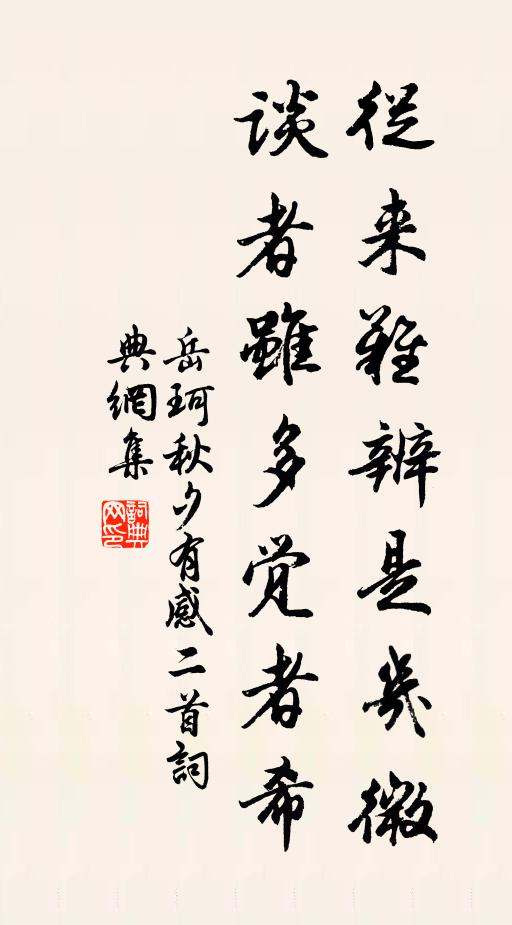 從来難辨是幾微
談者雖多覚者希
岳珂秋夕有感二首詞
典網集
詞典网印